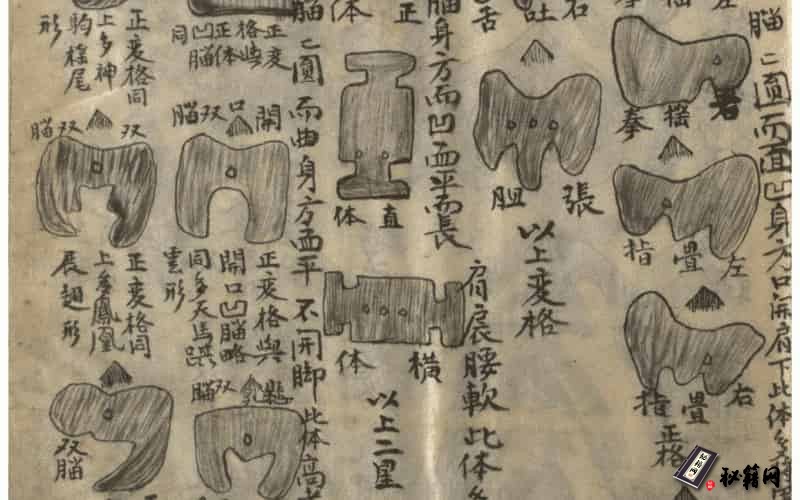 腦仁圓而面凹身方口開肩下此体
左
摇
拳
右
吐
舌
摇
拳
張
胆
以上变格
左
疊
指
右
疊
指
正格
腦身方而凹面平而長
肩扆腰軟此体
正
体
直
体
横
体
以上二星
腦仁圓而曲身方面平不開脚此体高
正变
格
正体
凹腦
同
開
口
双
腦
正变格與
開口凹腦略
同多天馬
雲形
双
腦
正变格同
上多神
駒摇尾
形
双
双
腦
正变格同
上多鳳凰
展翅形
双
腦
秘籍网